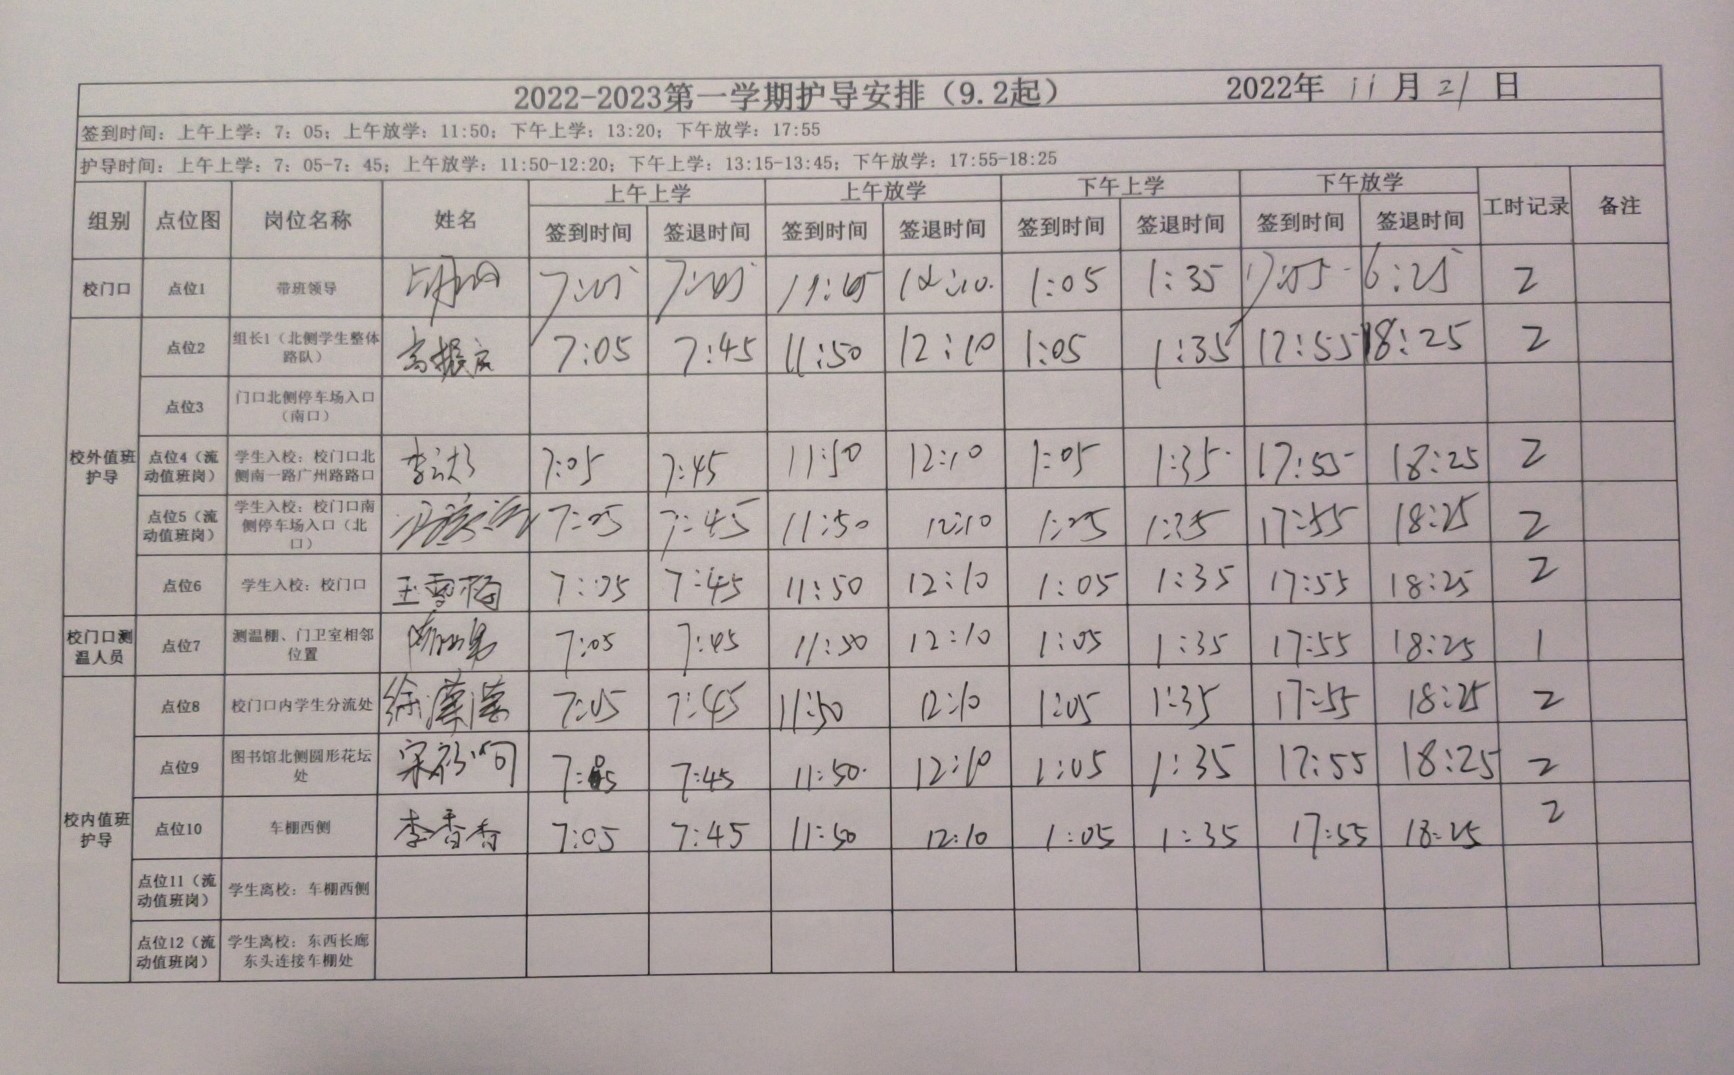 2022-2023第一学期护导安排（9.2起） 2022年 11月21日
签到时间：上午上学：7：05；上午放学：11:50；下午上学：13:20；下午放学：17:55
护导时间：上午上学：7：05-7：45；上午放学：11:50-12:20；下午上学：13:15-13:45；下午放学：17:55-18:25
组别 点位图 岗位名称 姓名 上午上学 上午放学 下午上学 下午放学 工时记录 备注
签到时间 签退时间 签到时间 签退时间 签到时间 签退时间 签到时间 签退时间
校门口 点位1 带班领导 1:05 1:35 6:25 2
校外值班护导
点位2 组长1（北侧学生整体路队） 7:05 7:45 11:50 12:10 1:05 1:35 17:55 18:25 2
点位3 门口北侧停车场入口（南口）
点位4（流动值班岗） 学生入校：校门口北侧南一路广州路路口 7:05 7:45 11:50 12:10 1:05 1:35 17:55 18:25 2
点位5（流动值班岗） 学生入校：校门口南侧停车场入口（北口） 7:05 7:45 11:50 12:10 1:05 1:35 17:55 18:25 2
点位6 学生入校：校门口 王雪梅 7:05 7:45 11:50 12:10 1:05 1:35 17:55 18:25 2
校门口测温人员 点位7 测温棚、门卫室相邻位置 7:05 7:45 11:50 12:10 1:05 1:35 17:55 18:25 1
校内值班护导
点位8 校门口内学生分流处 徐潇潇 7:05 7:45 11:50 12:10 1:05 1:35 17:55 18:25 2
点位9 图书馆北侧圆形花坛处 7:05 7:45 11:50 12:10 1:05 1:35 17:55 18:25 2
点位10 车棚西侧 李香香 7:05 7:45 11:50 12:10 1:05 1:35 17:55 18:25 2
点位11（流动值班岗） 学生离校：车棚西侧
点位12（流动值班岗） 学生离校：东西长廊东头连接车棚处